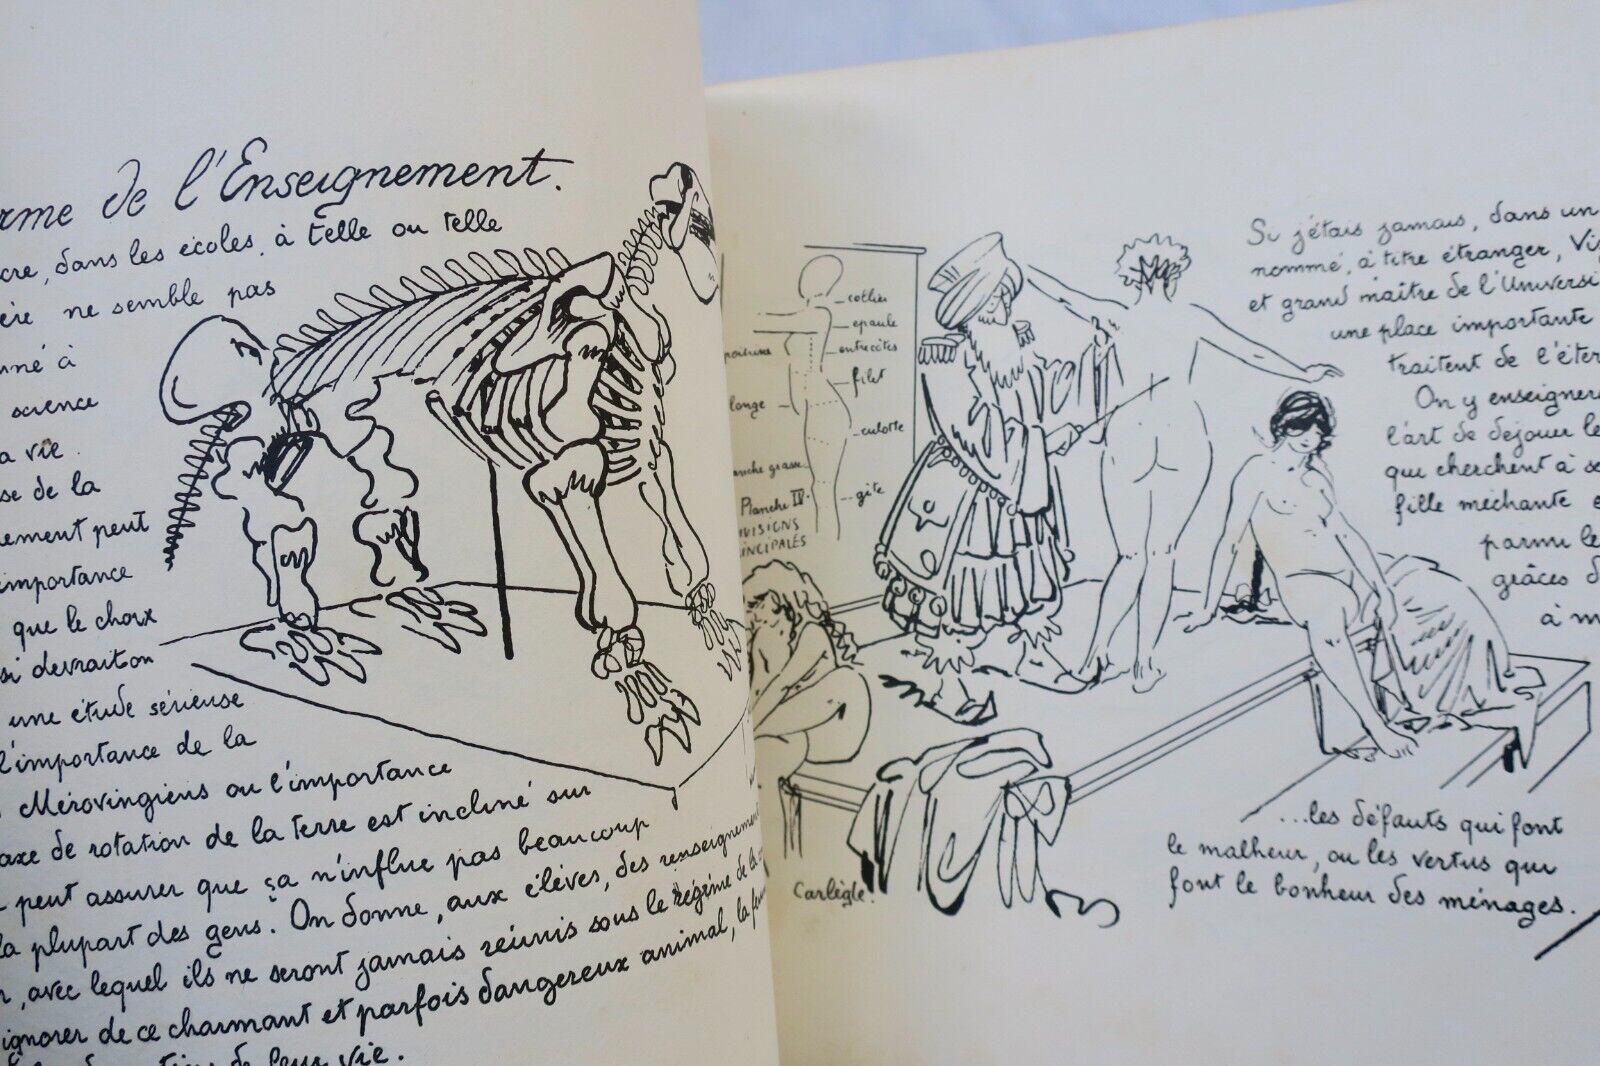 de l'Enseignement.
dans les écoles, à telle ou telle
ne semble pas
à
science
vie.
de la
peut
importance
que le choix
si devrait on
une étude sérieuse
l'importance de la
Mérovingiens ou l'importance
axe de rotation de la terre est incliné sur
peut assurer que ça n'influe pas beaucoup
la plupart des gens. On donne, aux élèves, des
avec lequel ils ne seront jamais réunis sous le régime de la
ignorer de ce charmant et parfois dangereux animal, la
de leur vie.
collier
epaule
entrecôtes
filet
longe
culotte
gîte
Planche IV.
Carlègle.
Si j'étais jamais, dans un
nommé, à titre étranger,
et grand maître de l'
une place importante
traitent de
On y
l'art de déjouer
que cherchent à
fille méchante
parmi
grâces
à
...les défauts qui font
le malheur, ou les vertus qui
font le bonheur des ménages.